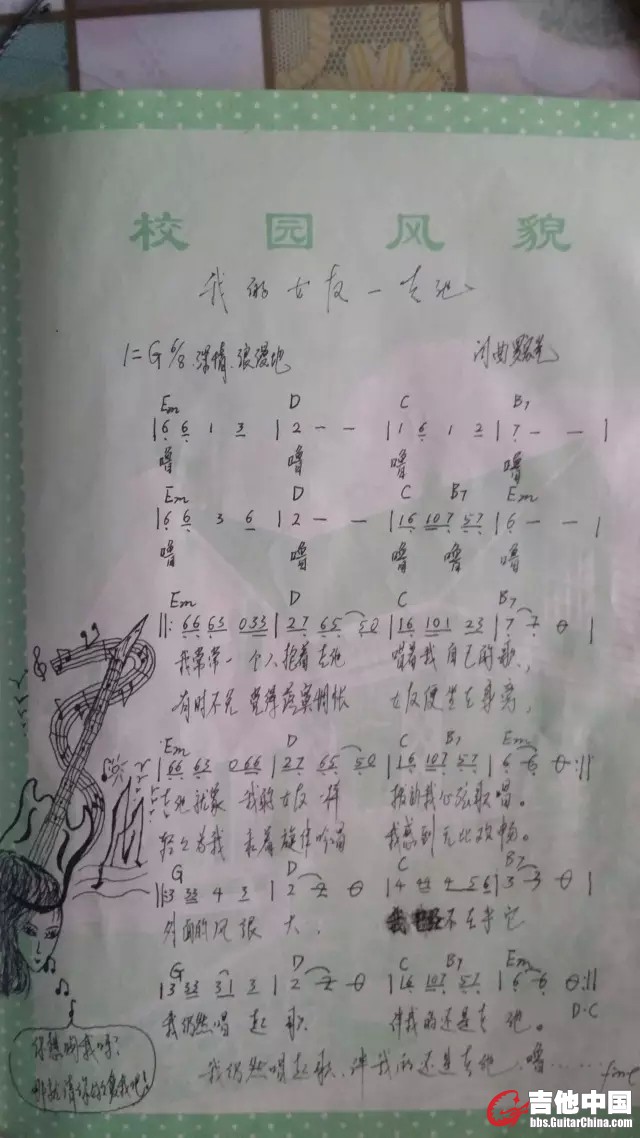 校园风貌
我的女友一吉他
1=G 6/8 深情.浪漫地 词曲
Em D C B7
|6 6 1 3 |2 - - |1 6 1 2 |7 - - |
噜 噜 噜 噜
Em D C B7 Em
|6 6 3 6 |2 - - |16 107 57 |6 - |
噜 噜 噜 噜 噜
Em D C B7
||: 66 63 033 |27 65 50 |16 101 23 |7 7 0 |
我常常一个人抱着吉他 唱着我自己的歌,
有时不免觉得落寞惆怅 女友便坐在身旁,
Em D C B7 Em
|66 63 066 |27 65 50 |16 107 57 |6 6 0 :||
吉他就象我的女友一样 拨动我心弦歌唱。
轻轻为我 旋律吟唱 我感到无比欢畅。
G D C B7
||:3 33 4 3 |2 2 0 |4 44 4 56 |3 3 0 |
外面的风很大, 我 不在乎它
G D C B7 Em
|3 33 31 3 |2 2 0 |16 107 57 |6 6 0 :||
D.C
我仍然唱起歌 伴我的还是吉他。
我仍然唱起歌,伴我的还是吉他,噜…… fine
你想成我吗?
那就请你好好爱我吧!
吉他中国
bbs.GuitarChina.com